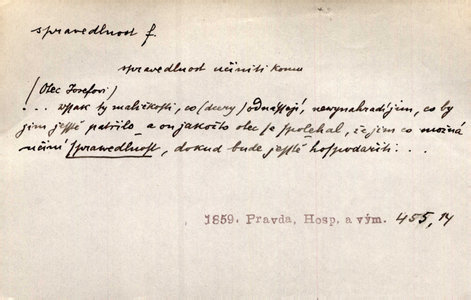 spravedlnost f.
spravedlnost učiniti komu
(Otec Josefovi)
... wssak ty maličkosti, co (dcery) odnássejí, newynahradí jim, co by
jim jesstě patřilo, a on jakožto otec je spolehal, že jim co možná
učiní sprawedlnost, dokud bude jesstě hospodařiti...
1859. Pravda, Hosp. a vým. 455,14